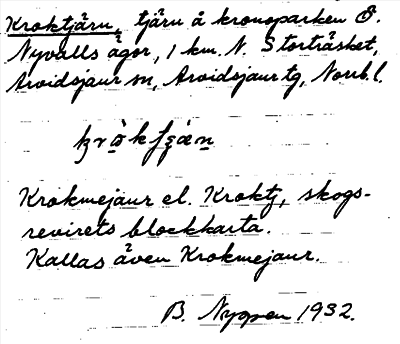 Kroktjärn, tjärn å kronoparken Ö.
Nyvalls ägor, 1 km. N. Storträsket,
Arvidsjaur sn, Arvidsjaur tg, Norrb. l.
Krokmejaur el. Kroktj, skogs-
revirets blockkarta.
Kallas även Krokmejaur.
B. Nygren 1932.